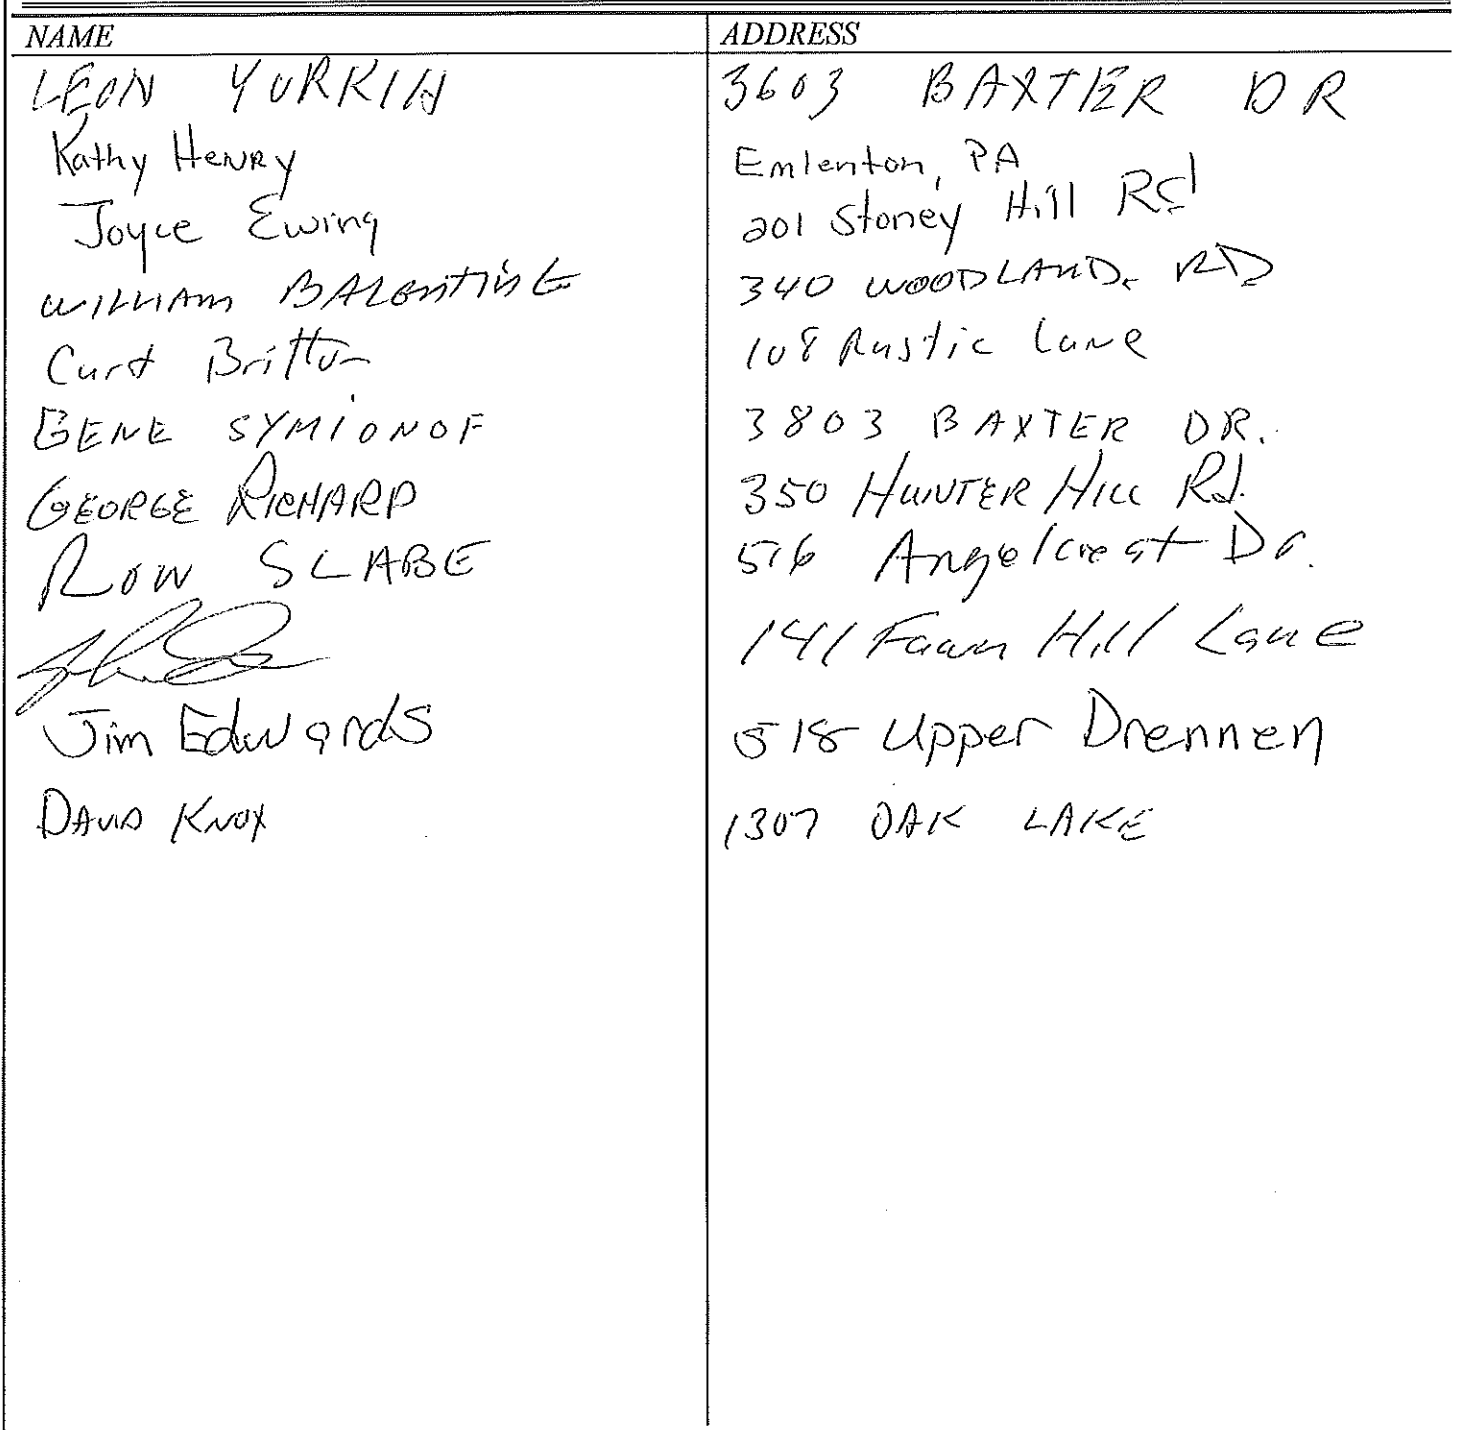 NAME ADDRESS
LEON YURKIN 3603 BAXTER DR
Kathy Henry Emlenton, PA
Joyce Ewing 201 Stoney Hill Rd
WILLIAM BALENTINE 340 WOODLAND RD
Curt Britton 108 Rustic Lane
GENE SYMIONOF 3803 BAXTER DR.
GEORGE RICHARD 350 HUNTER HILL Rd.
RON SLABE 516 Angelcrest Dr.
141 Fawn Hill Lane
Jim Edwards 518 Upper Drennen
DAVID KNOX 1307 OAK LAKE